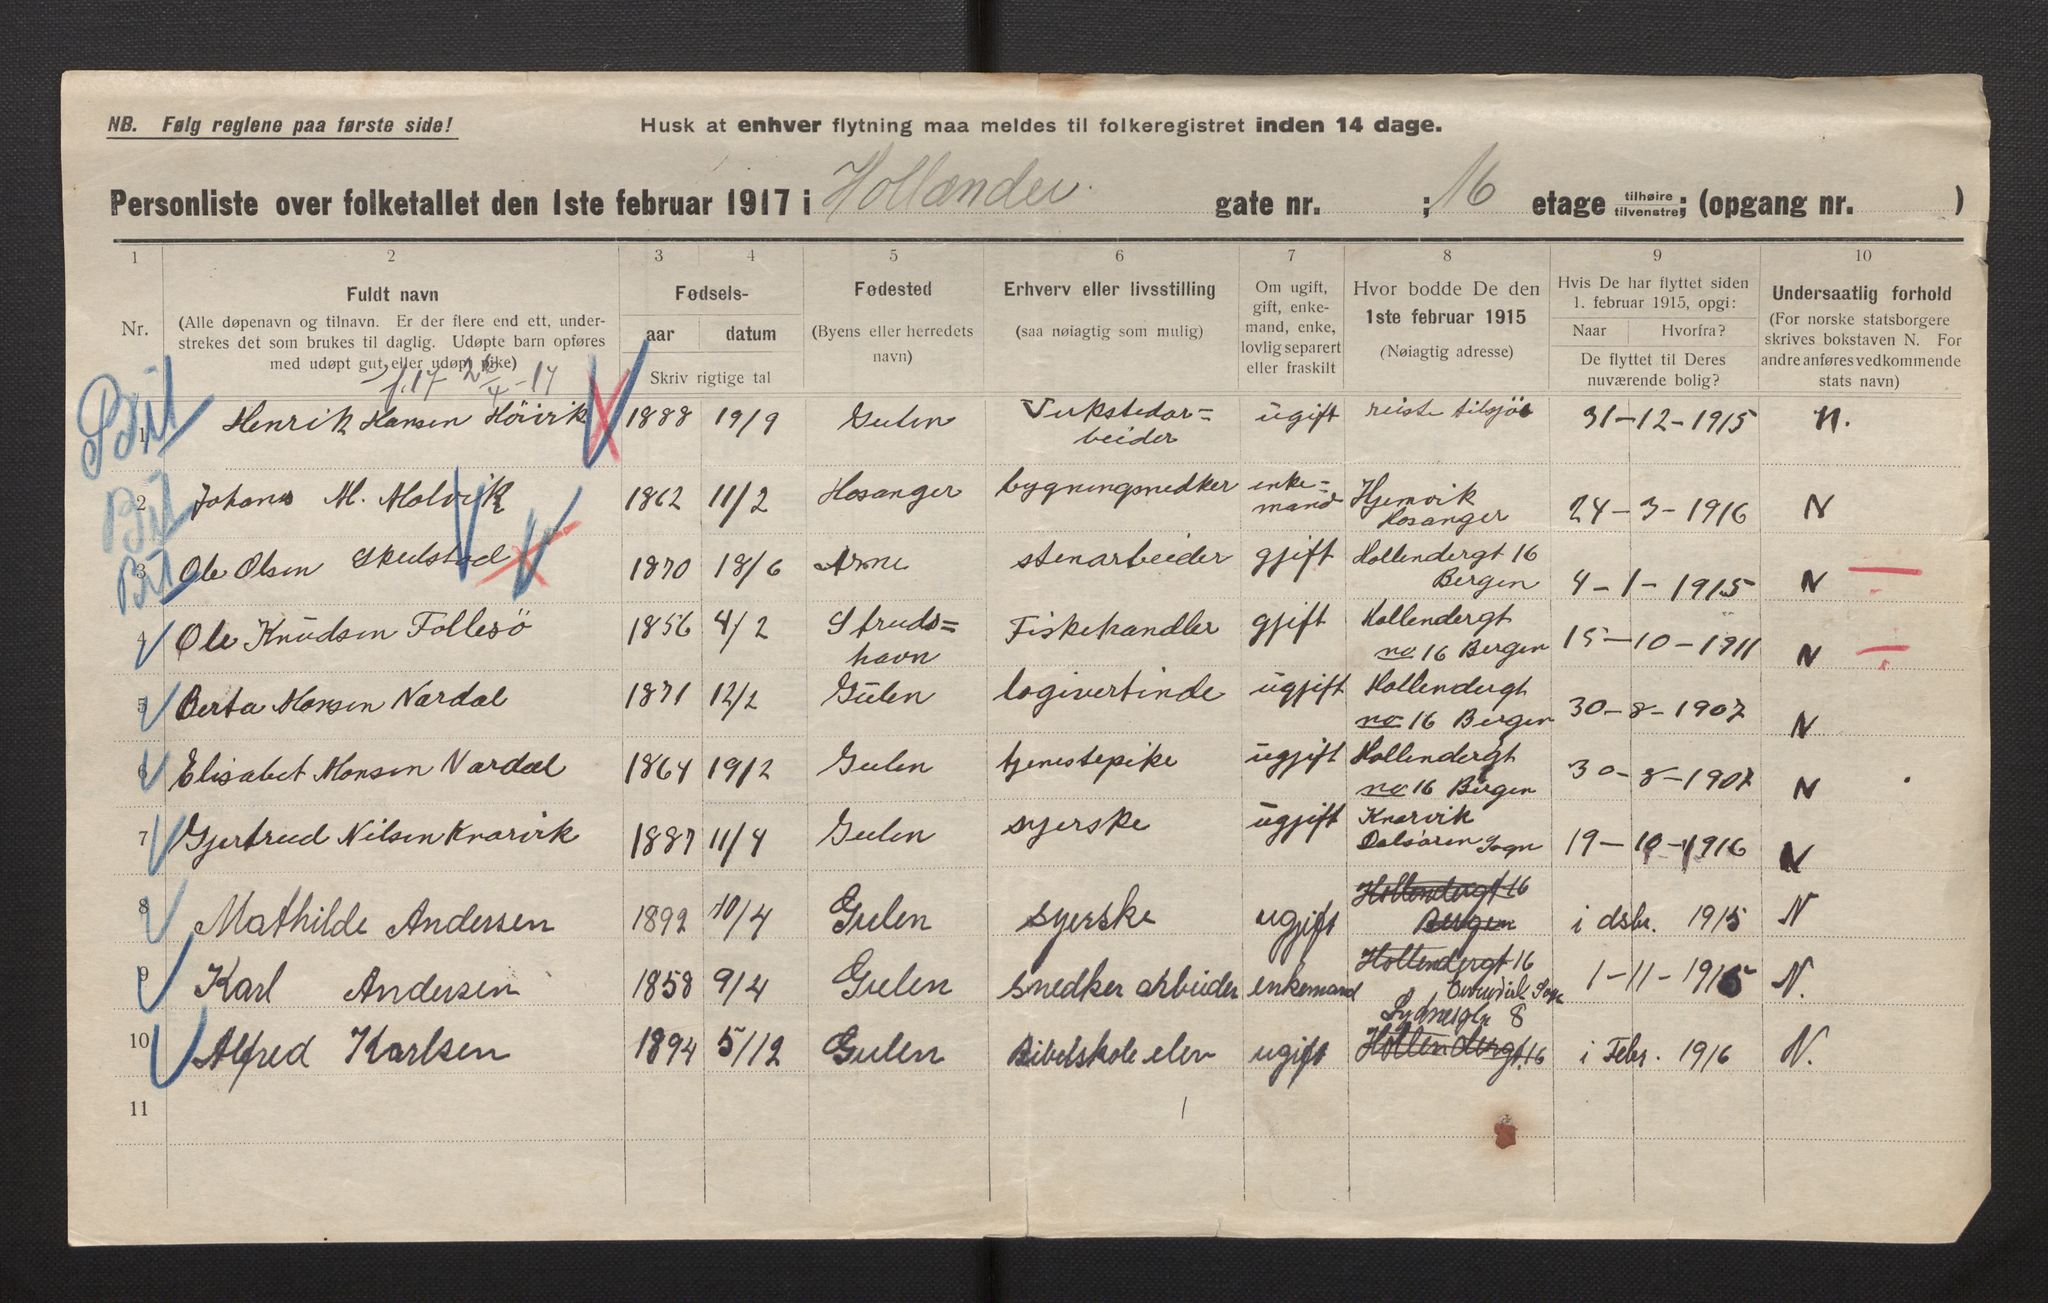 NB. Følg reglene paa første side!
Husk at enhver flytning maa meldes til folkeregistret inden 14 dage.
Personliste over folketallet den 1ste februar 1917 i Hollænder gate nr. ; 16 etage tilhøire tilvenstre; (opgang nr. )
1 2 3 4 5 6 7 8 9 10
Nr.
Fuldt navn
(Alle døpenavn og tilnavn. Er der flere end ett, under-
strekes det som brukes til daglig. Udøpte barn opføres
med udøpt gut eller udøpt pike)
Fødsels-
aar datum
Skriv rigtige tal
Fødested
(Byens eller herredets
navn)
Erhverv eller livsstilling
(saa nøiagtig som mulig)
Om ugift,
gift, enke-
mand, enke,
lovlig separert
eller fraskilt
Hvor bodde De den
1ste februar 1915
(Nøiagtig adresse)
Hvis De har flyttet siden
1. februar 1915, opgi:
Naar Hvorfra?
De flyttet til Deres
nuværende bolig?
Undersaatlig forhold
(For norske statsborgere
skrives bokstaven N. For
andre anføres vedkommende
stats navn)
1 Henrik Hansen Höivik 1888 19/9 Gulen Verkstedar=
beider ugift reiste tilsjös 31-12-1915 N.
2 Johans M. Molvik 1862 11/2 Hosanger bygningsnedker enke=
mand Hjemvik
Hosanger 24-3-1916 N
3 Ole Olsen Skulstad 1870 18/6 Arne stenarbeider gjift Hollendergt 16
Bergen 4-1-1915 N
4 Ole Knudsen Follesö 1856 4/2 Struds=
havn Fiskehandler gjift Hollendergt
no 16 Bergen 15-10-1911 N
5 Berta Monsen Nardal 1871 12/2 Gulen logivertinde ugjift Hollendergt
no 16 Bergen 30-8-1907 N
6 Elisabet Monsen Nardal 1864 19/2 Gulen tjenestepike ugjift Hollendergt
no 16 Bergen 30-8-1907 N
7 Gjertrud Nilsen Knarvik 1887 11/4 Gulen syerske ugjift Knarvik
Dalsören Sogn 19-10-1916 N
8 Mathilde Andersen 1892 10/4 Gulen syerske ugjift Hollendergt 16
Bergen i dsbr. 1915 N
9 Karl Andersen 1858 9/4 Gulen Snedker arbeider enkemand Hollendergt 16
Sogn 1-11-1915 N.
10 Alfred Karlsen 1894 5/12 Gulen Bibelskole elev ugift 8
Hollendergt. 16 i Febr. 1916 N.
11